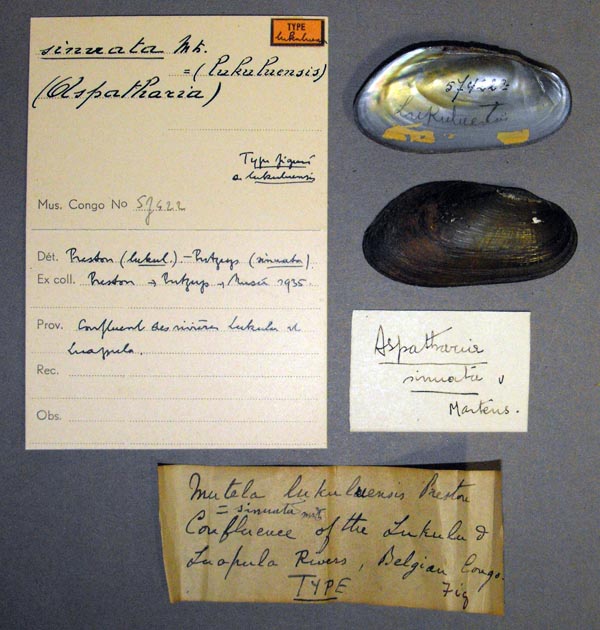 TYPE
lukuluen
sinuata Mts.
= (lukuluensis)
(Aspatharia)
Type figuré
de lukuluensis
Mus. Congo No 57422
Dét. Preston (lukul.) – Putzeys (sinuata).
Ex coll. Preston → Putzeys → Musée 1935.
Prov. Confluent des rivières Lukulu et
Luapula.
Rec.
Obs.
57422
Lukuluensis
Aspatharia
sinuata v
Martens.
Mutela lukuluensis Preston
= sinuata Mts
Confluence of the Lukulu &
Luapula Rivers, Belgian Congo.
TYPE
Fig